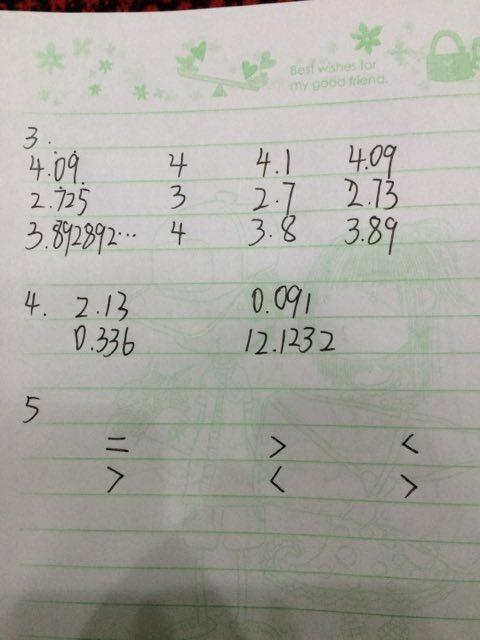 Best wishes for
my good friend.
3.
4.0̇9̇ 4 4.1 4.09
2.7̇25̇ 3 2.7 2.73
3.892892… 4 3.8 3.89
4. 2.13 0.091
0.336 12.1232
5
= > <
> < >